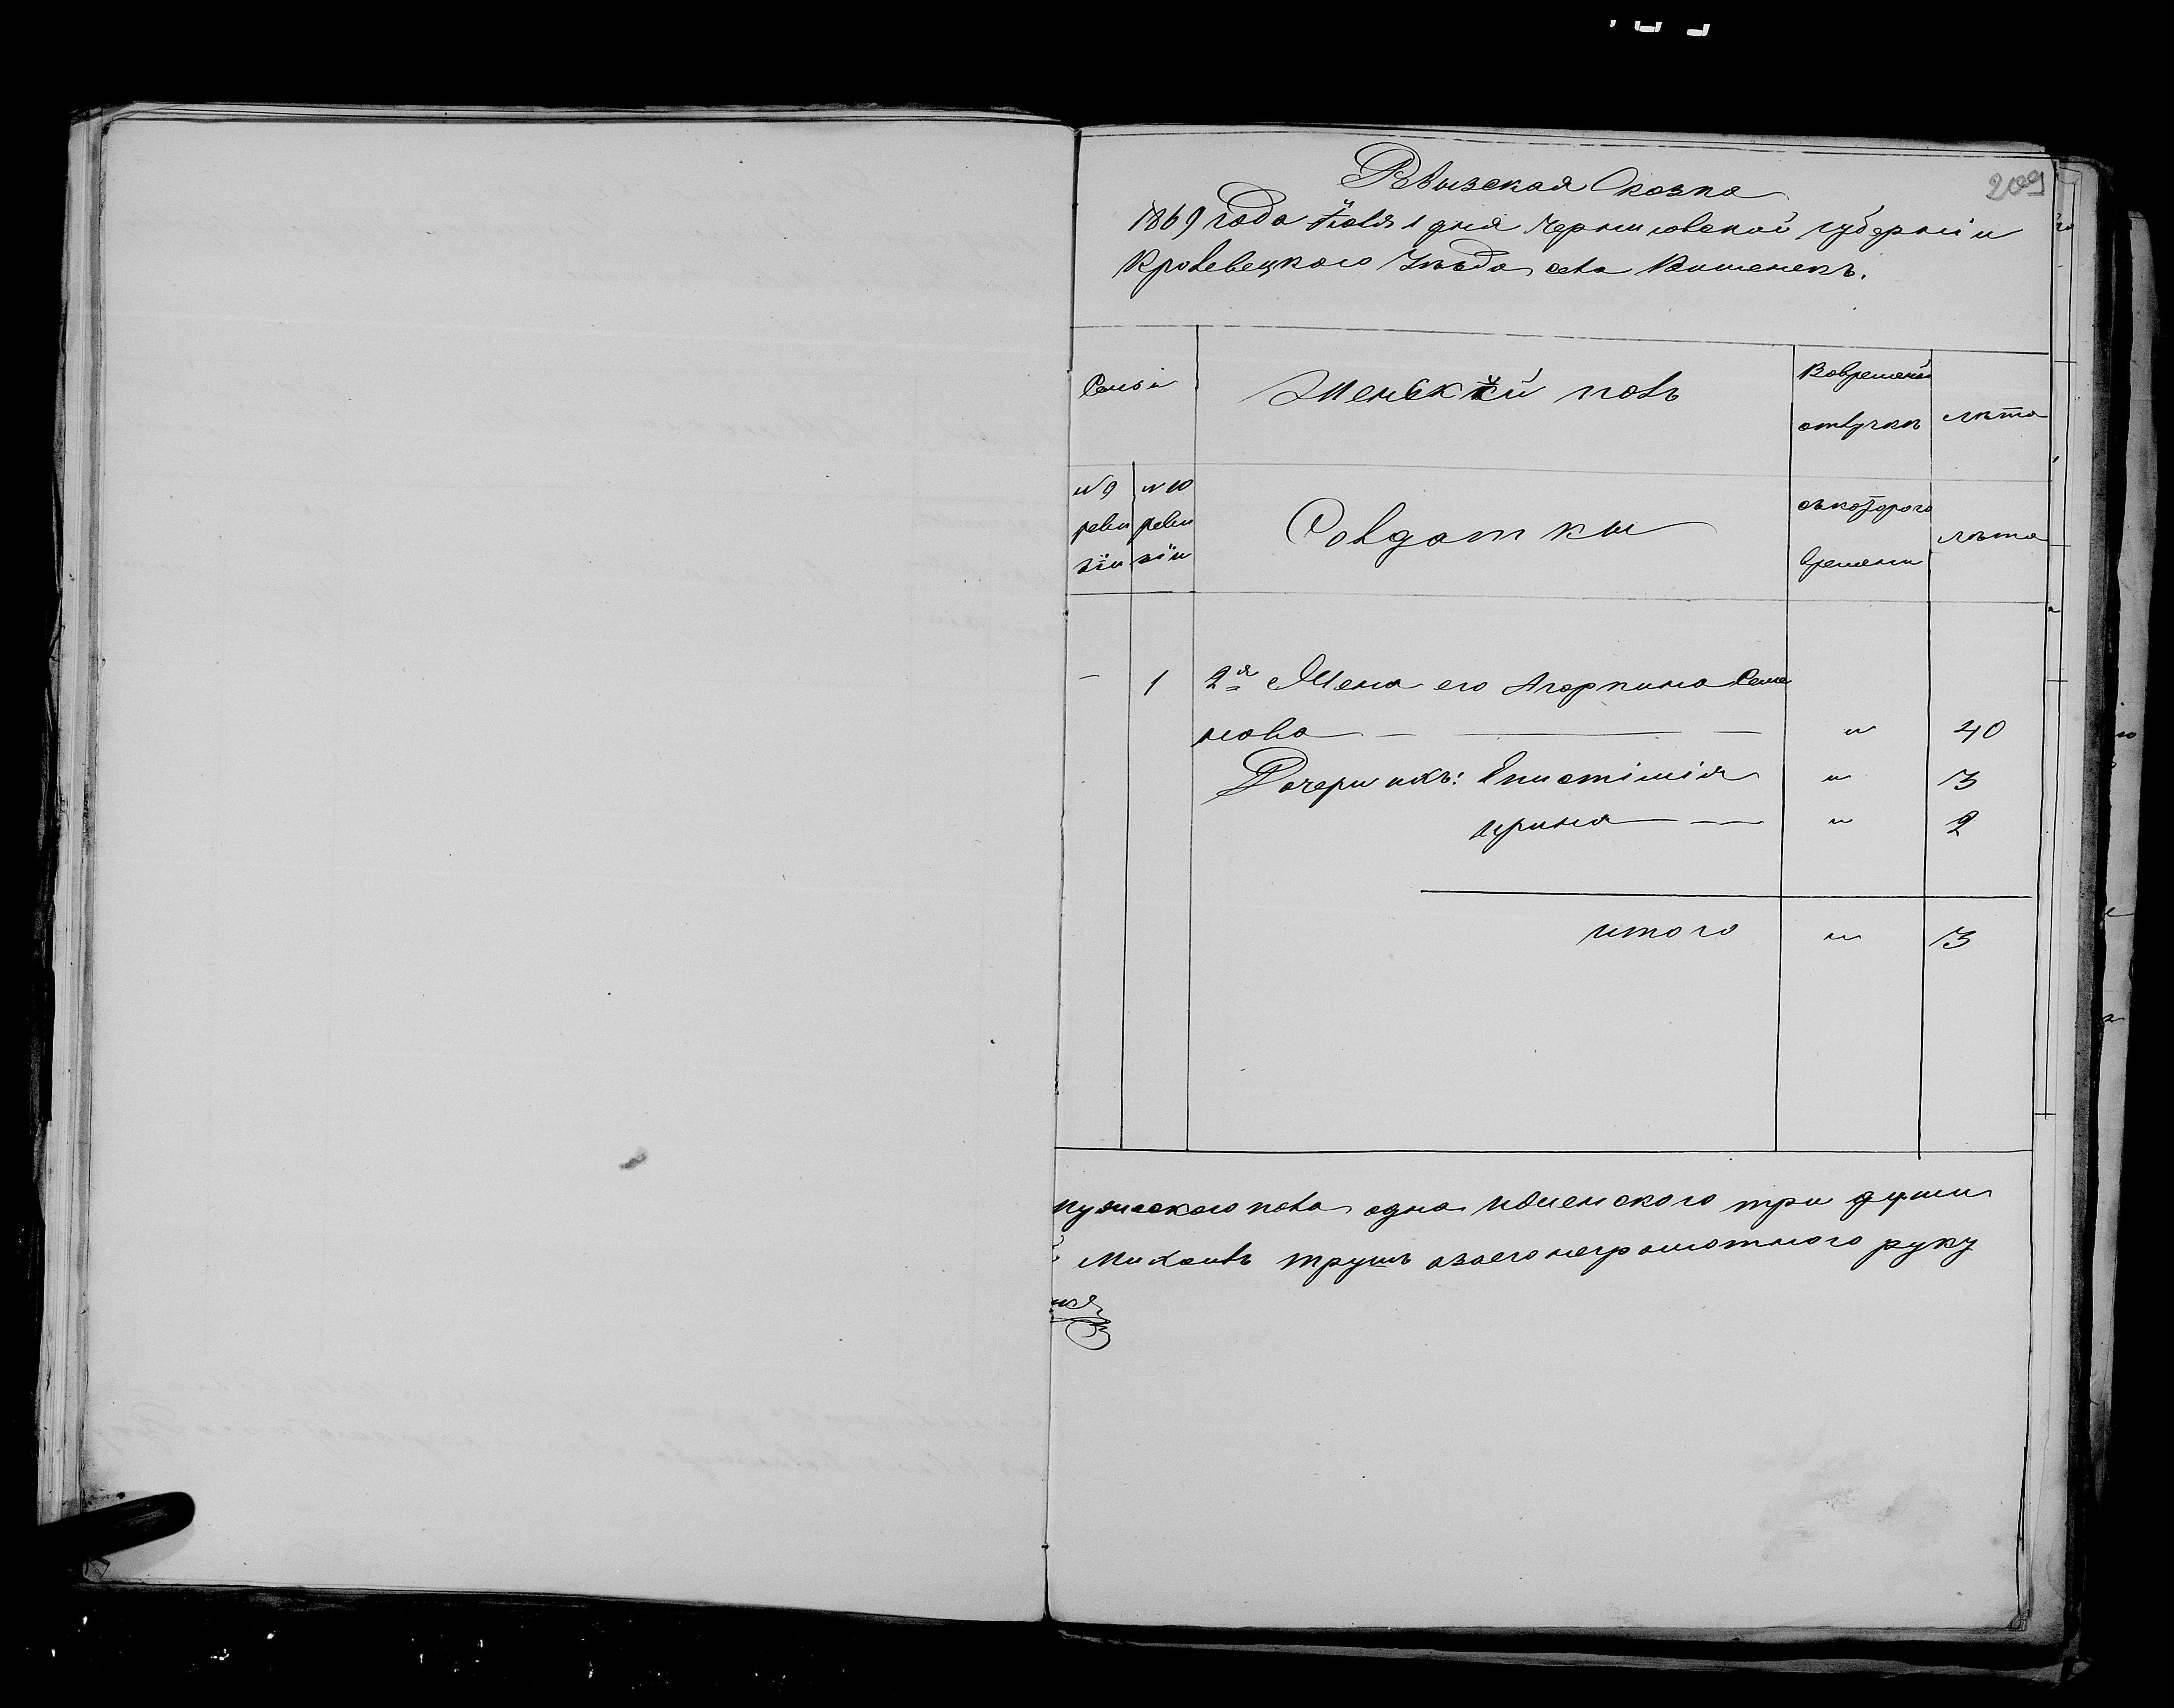 209
Рвизская Сказка
1869 года Июля 1 дня Черниговской губернии
Кролевецкого Уезда села Вишенекъ.
Семьи
Женский полъ
Вовременой
отлучкъ
лѣта
№ 9 ревизіи
№ 10 ревизіи
Солдатки
съкоторого
времени
лѣта
— 1 2я Жена его Агорпина Семе
нова — — — " 40
Дочери ихъ: Епистімія " 3
Ирина — — " 2
итого " 3
мужескаго пола одна Иженского три души
Михаилъ трушъ азаегонеграмотного руку